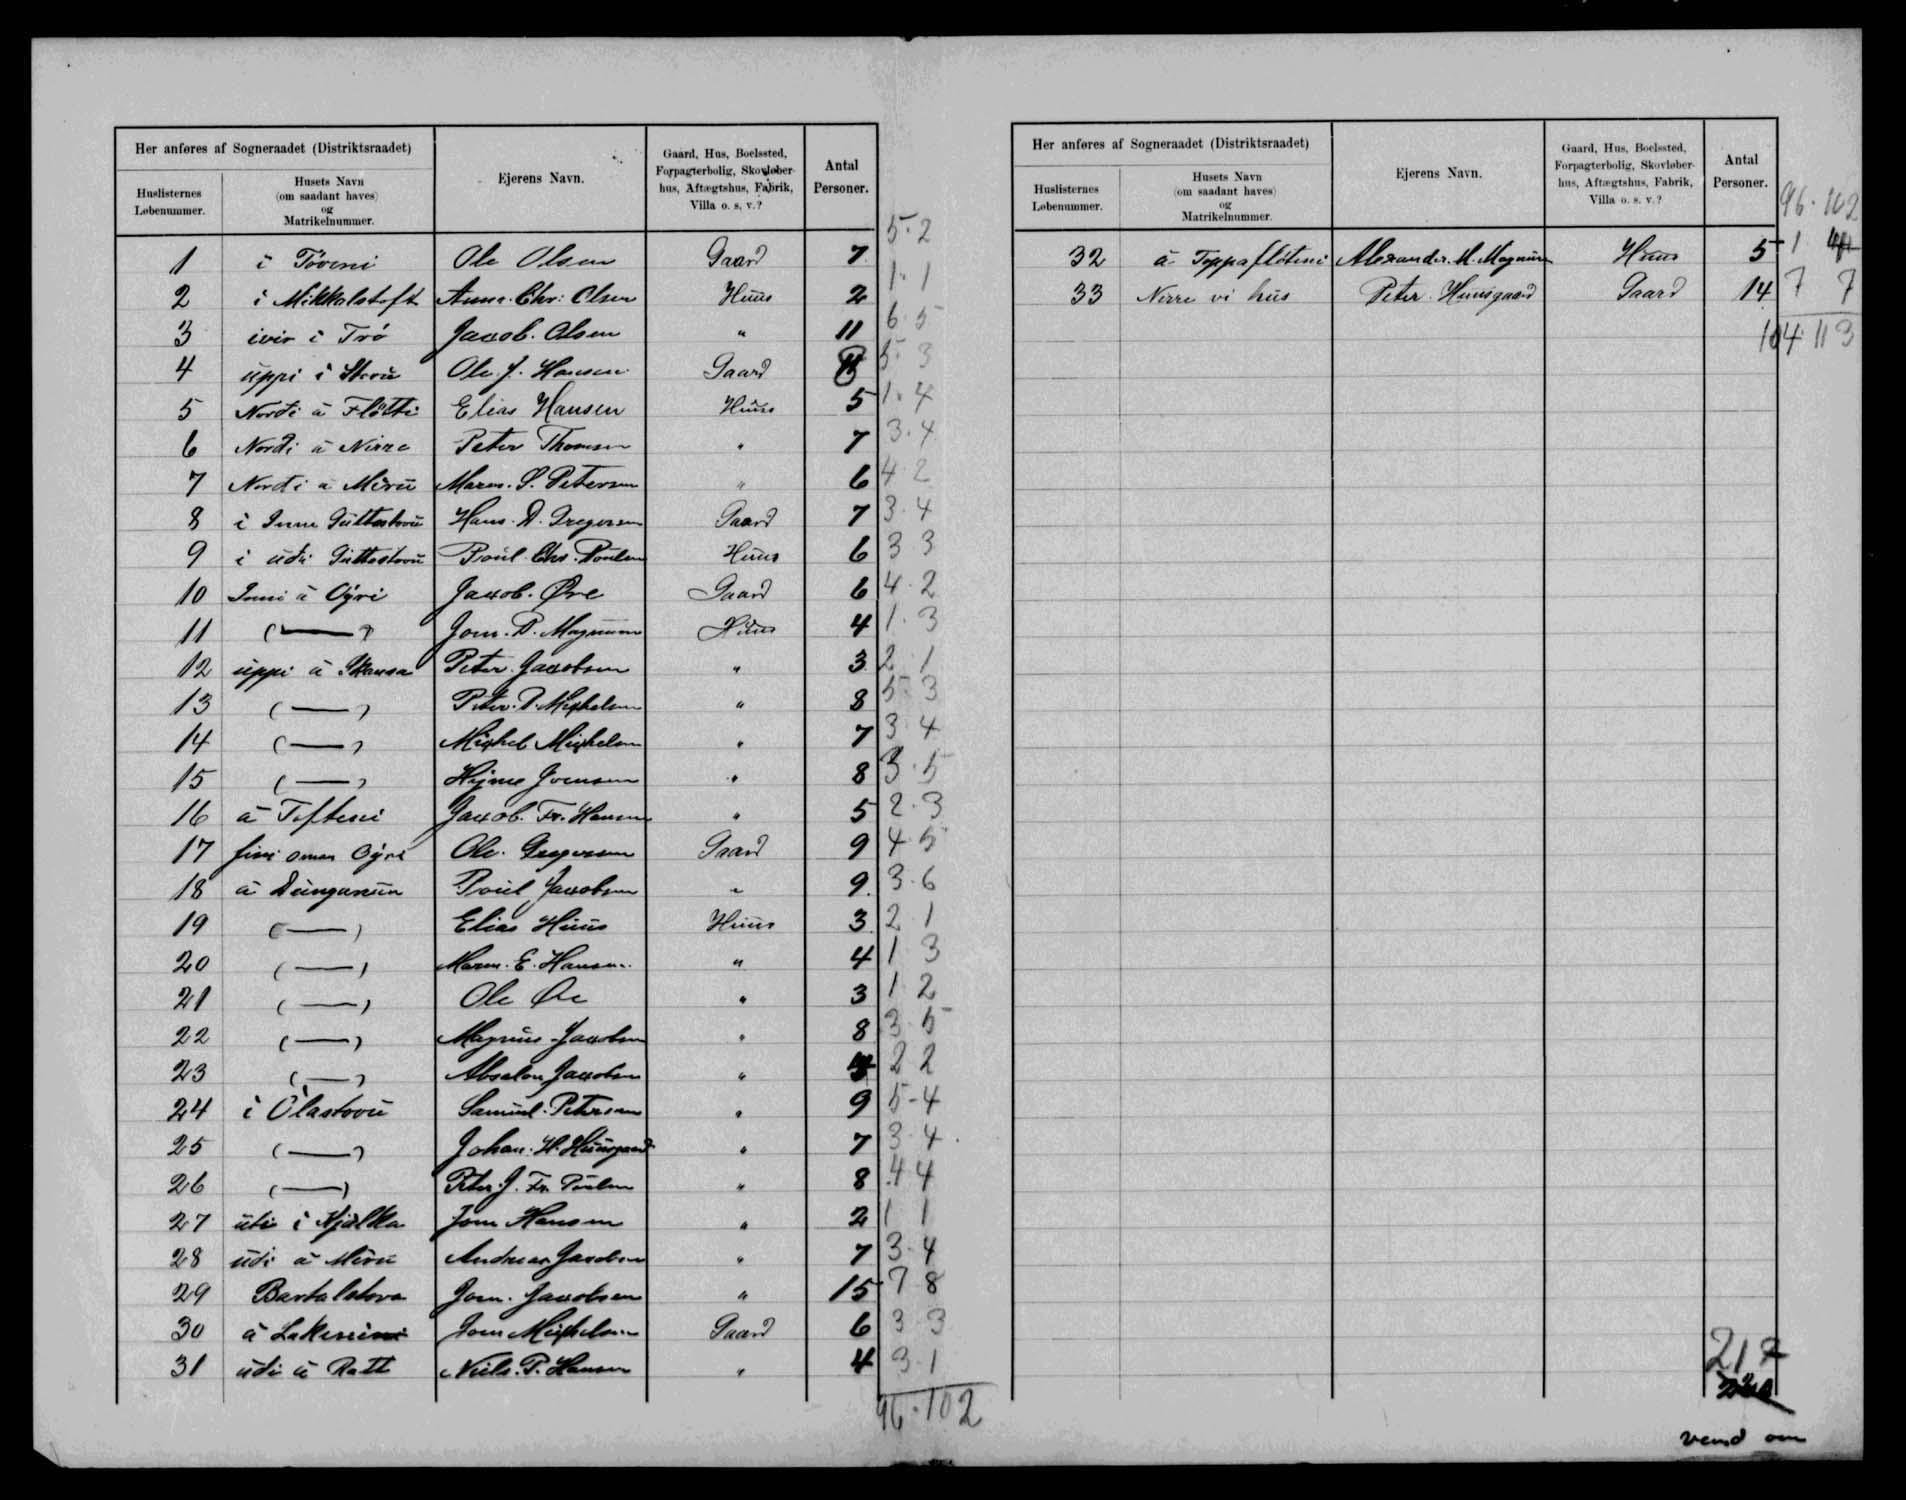 Her anføres af Sogneraadet (Distriktsraadet)
Huslisternes Løbenummer.
Husets Navn (om saadant haves) og Matrikelnummer.
Ejerens Navn.
Gaard, Hus, Boelssted, Forpagterbolig, Skovløberhus, Aftægtshus, Fabrik, Villa o. s. v.?
Antal Personer.
5·2
1 i Tóvini Ole Olsen Gaard 7 1·1
2 i Mikkalstoft Anna Chr: Olsen Huus 2
3 ivir i Tró Jacob. Olsen " 11 6·5
4 uppi i Stovu Ole J. Hansen Gaard 8 5·3
5 Nordi á Fløtti Elias Hansen Huus 5 1·4
6 Nordi á Nirre Peter Thomsen " 7 3·4
7 Nordi á Mirú Maren. S. Petersen " 6 4·2
8 i Inni Guttastovu Hans. D. Gregersen Gaard 7 3·4
9 i udi Guttastovu Poul. Chr. Poulsen Huus 6 3 3
10 Inni á Oyri Jacob. Øre Gaard 6 4·2
11 (—) Joen. P. Magnussen Huus 4 1·3
12 uppi á Skansa Peter Jacobsen " 3 2·1
13 (—) Peter. P. Mikkelsen " 8 5·3
14 (—) Michel Michelsen " 7 3·4
15 (—) Joensen " 8 3·5
16 á Toftini Jacob. Fr. Hansen " 5 2·3
17 firi oman Oyri Ole. Gregersen Gaard 9 4·5
18 á Dunganun Poul Jacobsen " 9 3·6
19 (—) Elias Huus Huus 3 2·1
20 (—) Maren. E. Hansen " 4 1 3
21 (—) Ole Øre " 3 1 2
22 (—) Magnus Jacobsen " 8 3·5
23 (—) Absalon Jacobsen " 4 2 2
24 i Ólastovu Samuel. Petersen " 9 5-4
25 (—) Johan. H. Huusgaard " 7 3·4
26 (—) Peter. J. Fr. Poulsen " 8 4 4
27 uti i Kjalka Joen Hansen " 2 1 1
28 udi á Mirú Andreas Jacobsen " 7 3·4
29 Bartalstova Joen. Jacobsen " 15 7 8
30 á Joen Michelsen Gaard 6 3 3
31 udi á Rætt Niels. P. Hansen " 4 3·1
96·102
Her anføres af Sogneraadet (Distriktsraadet)
Huslisternes Løbenummer.
Husets Navn (om saadant haves) og Matrikelnummer.
Ejerens Navn.
Gaard, Hus, Boelssted, Forpagterbolig, Skovløberhus, Aftægtshus, Fabrik, Villa o. s. v.?
Antal Personer.
96·102
32 á Toppafløtini Alexander. M. Magnussen Huus 5 1 4
33 Nirre vi hus Peter. Huusgaard Gaard 14 7 7
104·113
217
vend om